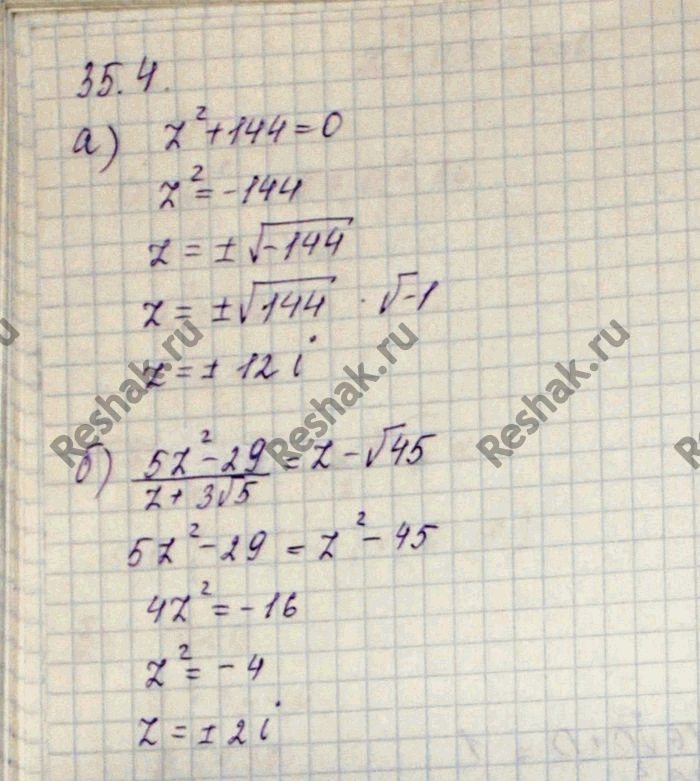 35.4.
а) z² + 144 = 0
z² = -144
z = ± √-144
z = ± √144 · √-1
z = ± 12 i
б) (5z² - 29)/(z + 3√5) = z - √45
5z² - 29 = z² - 45
4z² = -16
z² = -4
z = ± 2 i
Reshak.ru
Reshak.ru
Reshak.ru